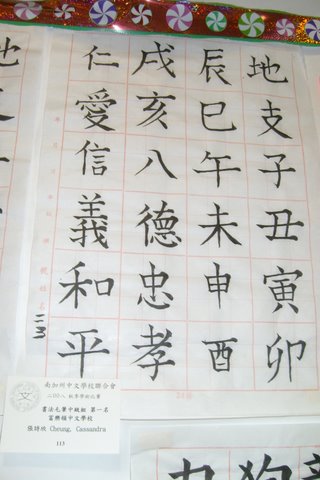 地支子丑寅卯
辰巳午未申酉
戌亥八德忠孝
仁愛信義和平
二三
南加州中文學校聯合會
二00八 秋季學術比賽
書法毛筆中級組 第一名
富樂頓中文學校
張詩欣 Cheung, Cassandra
113